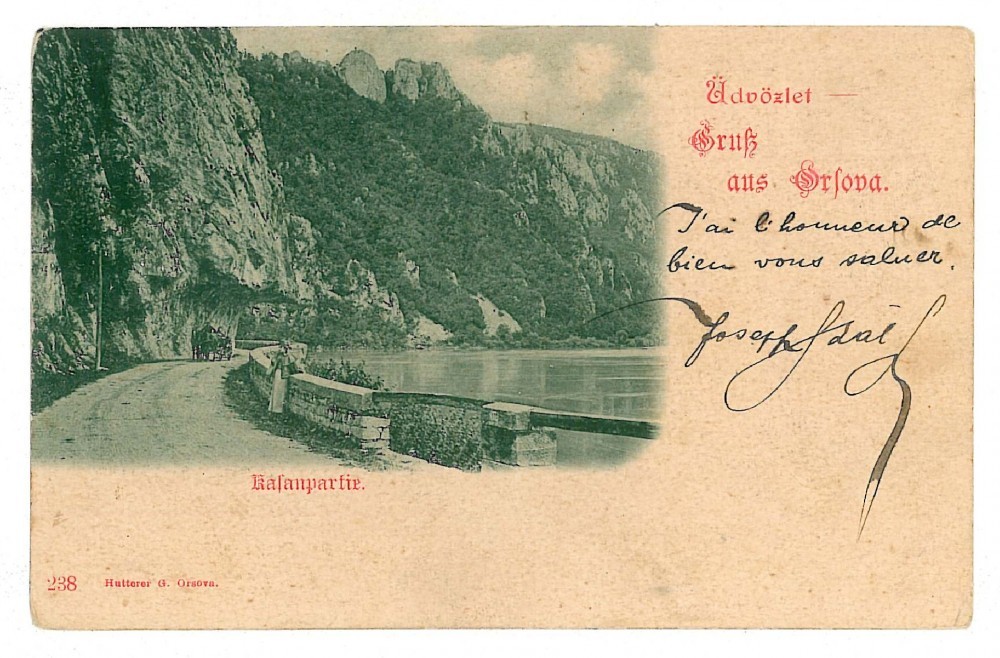 Üdvözlet —
Gruß
aus Orsova.
J'ai l'honneur de
bien vous saluer.
Joseph
Kásanpartie.
238 Hutterer G. Orsova.